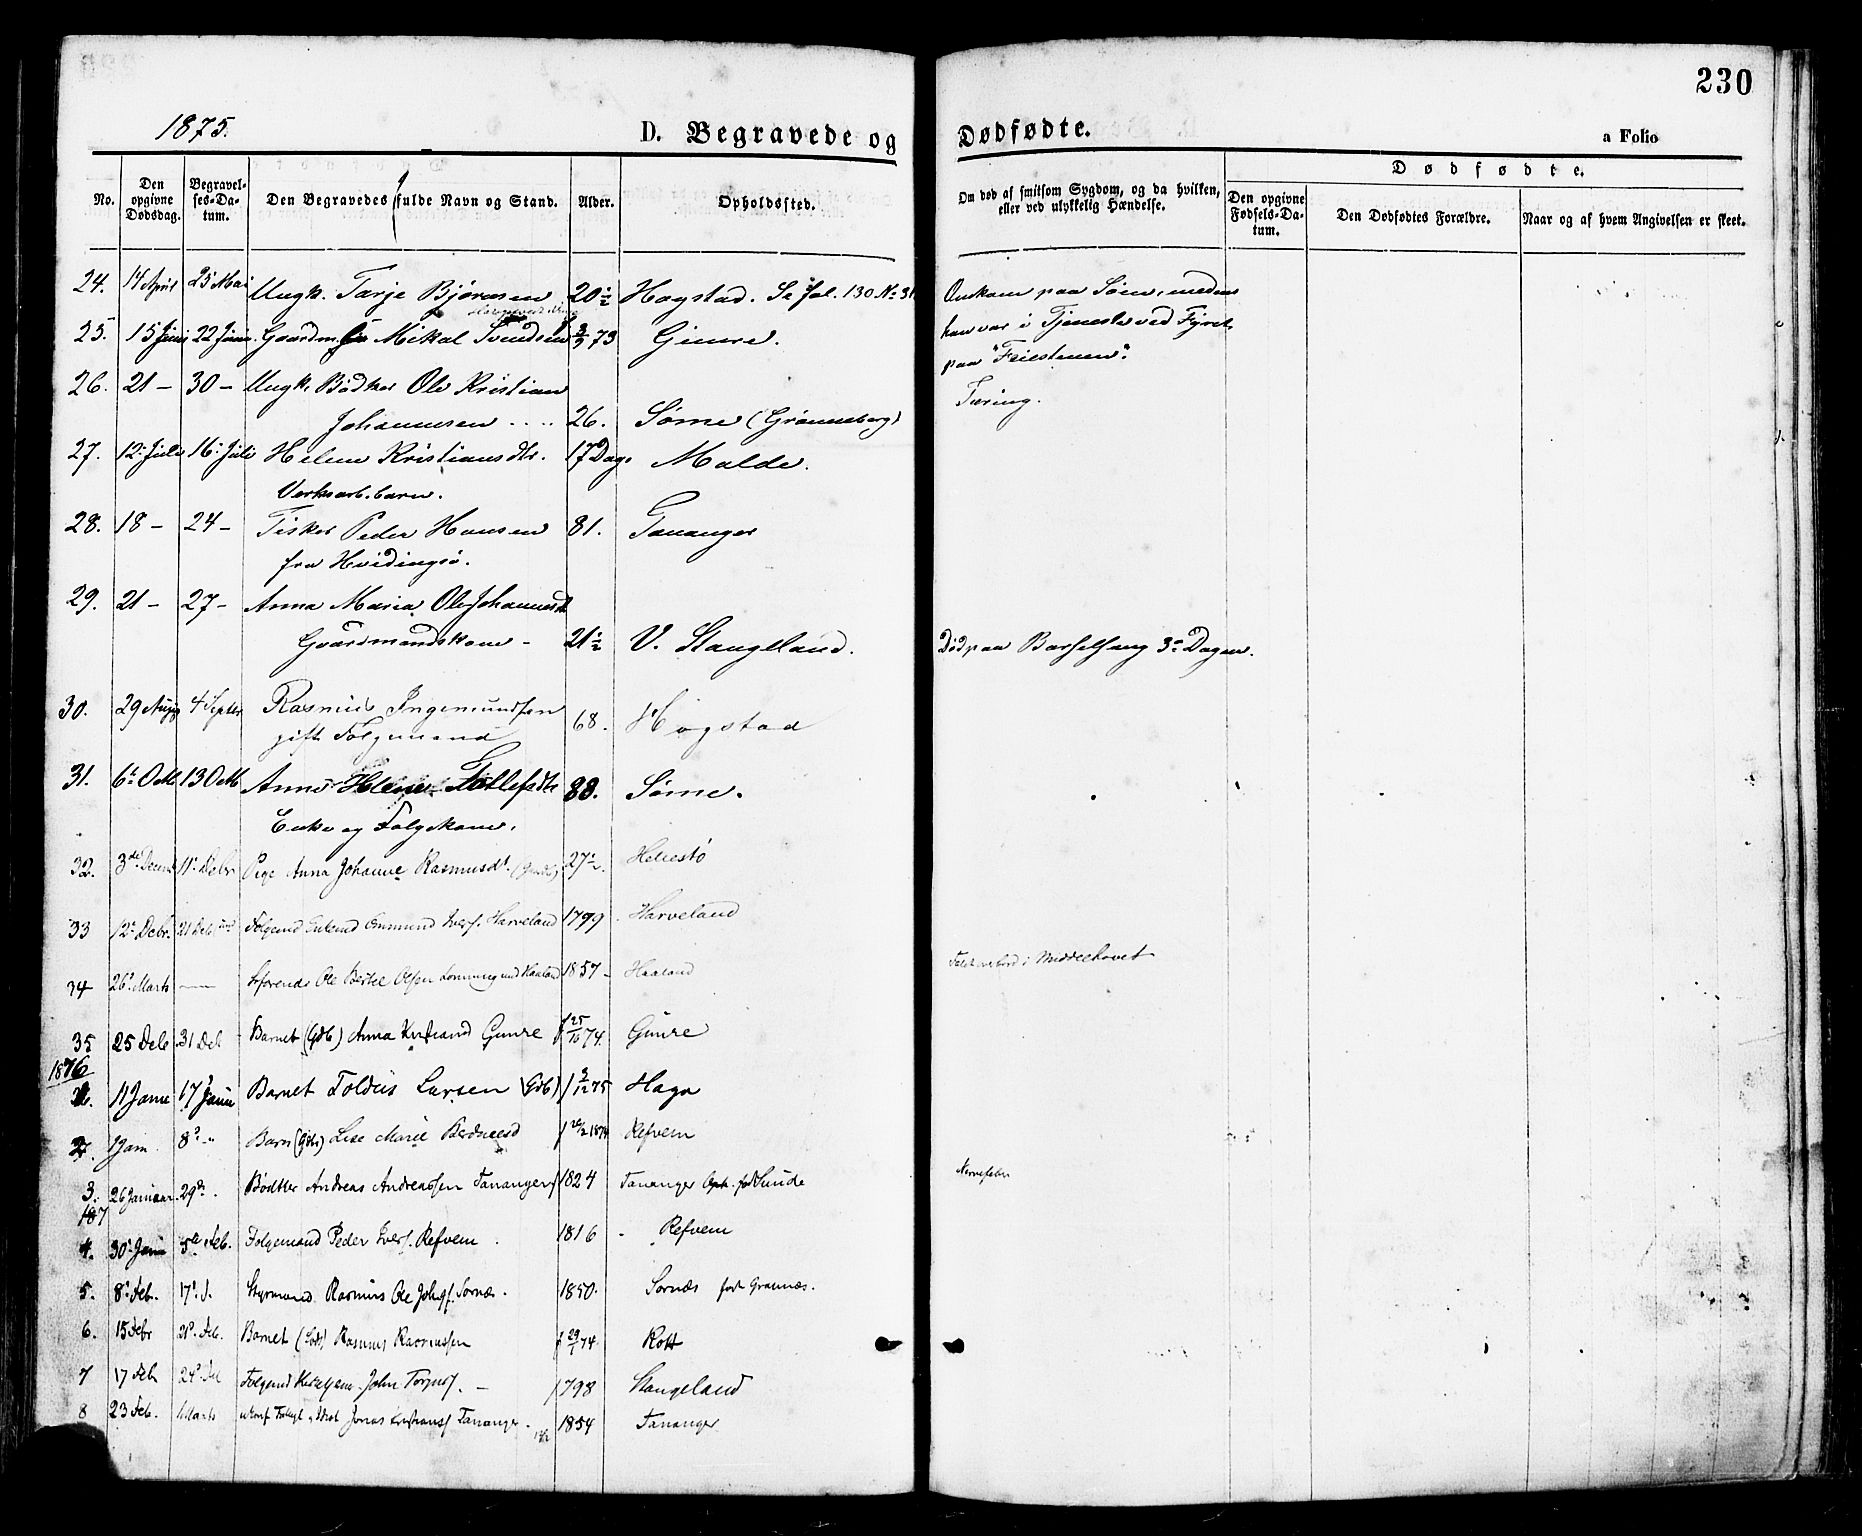 230
1875.
D. Begravede og Dødfødte.
a Folio
No.
Den opgivne Dødsdag.
Begravelses-Datum.
Den Begravedes fulde Navn og Stand.
Alder.
Opholdssted.
Om død af smitsom Sygdom, og da hvilken, eller ved ulykkelig Hændelse.
Dødfødte.
Den opgivne Fødsels-Datum.
Den Dødfødtes Forældre.
Naar og af hvem Angivelsen er skeet.
24. 14 April 25 Mai Ungk. Tarje Bjørnsen 20 1/2 Hogstad. Se fol. 130 No 31 Omkom paa Søen, medens
han var i Tjeneste ved Fyret
paa "Feiestenen".
25. 15 Juni 22 Juni. Gaardm. Mikal Svendsen 73 Gimre.
26. 21 - 30 - Ungk. Bødker Ole Kristian
Johannesen .... 26. Sømme (Grønneberg) Tæring.
27. 12. Juli 16. Juli Helene Kristiansdtr. 17 Dage Malde.
Verksarb. barn.
28. 18 - 24 - Fisker Peder Hansen 81. Tananger
fra Hvidingsø.
29. 21 - 27 - Anna Maria Ole Johannesd
Gaardmandskone - 21 1/2 V. Stangeland. Død paa Barselseng 3e Dagen.
30. 29 Aug 4 Septbr Rasmus Ingemundsen 68. Hogstad
gift Folgemand
31. 6te Octb 13 Octb Anne Helene Tollefsdtr 88. Sømme.
Enke og Folgekone.
32. 3de Decem 11. Debr Pige Anna Johanne Rasmusdt. 27 1/2. Hellestø
33 12. Debr. 21 Deb Folgemd Enkemd Ommund Ivers. Harveland 1799 Harveland
34 26. Marts — Ole Bertel Olsen Haaland 1857 - Haaland Faldt overbord i Middelhavet
35 25 Deb 31 Deb Barnet (Gdb) Anna Gimre f 25/10 74. Gimre
1876
1. 11 Janu 17 Janu Barnet Toldus Larsen (Gdb) f 9/12 75 Haga
2. 1 Jan 8. " Barn (Gdb) Lise Marie 1874 Refvem
3. 26 Januar 29de. Bødker Andreas Andreassen Tananger f 1824 Tananger Oph. født Sunde Nervefeber
187
4. 30. Janu 5te Feb. Folgemand Peder Ivers. Refvem. 1816 - Refvem
5. 8. Feb. 17. d. Styrmand Rasmus Ole Johs. Sørnæs. 1850. Sørnæs født Grannæs.
6. 15 Febr 21. Feb. Barnet Rasmus Rasmussen f 29/1 74 Rott
7 17 Feb 24. Feb Folgemd John Torjus. - 1798 Stangeland
8 23 Feb. 1 Marts Jonas Kristians. Tananger. 1854 Tananger